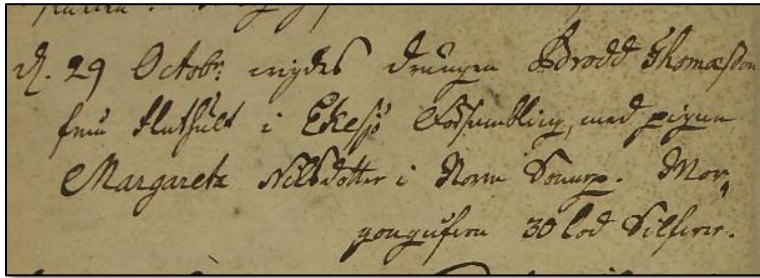 d. 29 Octobr: wigdes drengen Brodd Thomæsson
från Hulthult i Ekesjö Försambling, med pigan
Margareta Nilsdotter i Norra Sonarp. Mor-
gongåfwa 30 lod Silfwer.